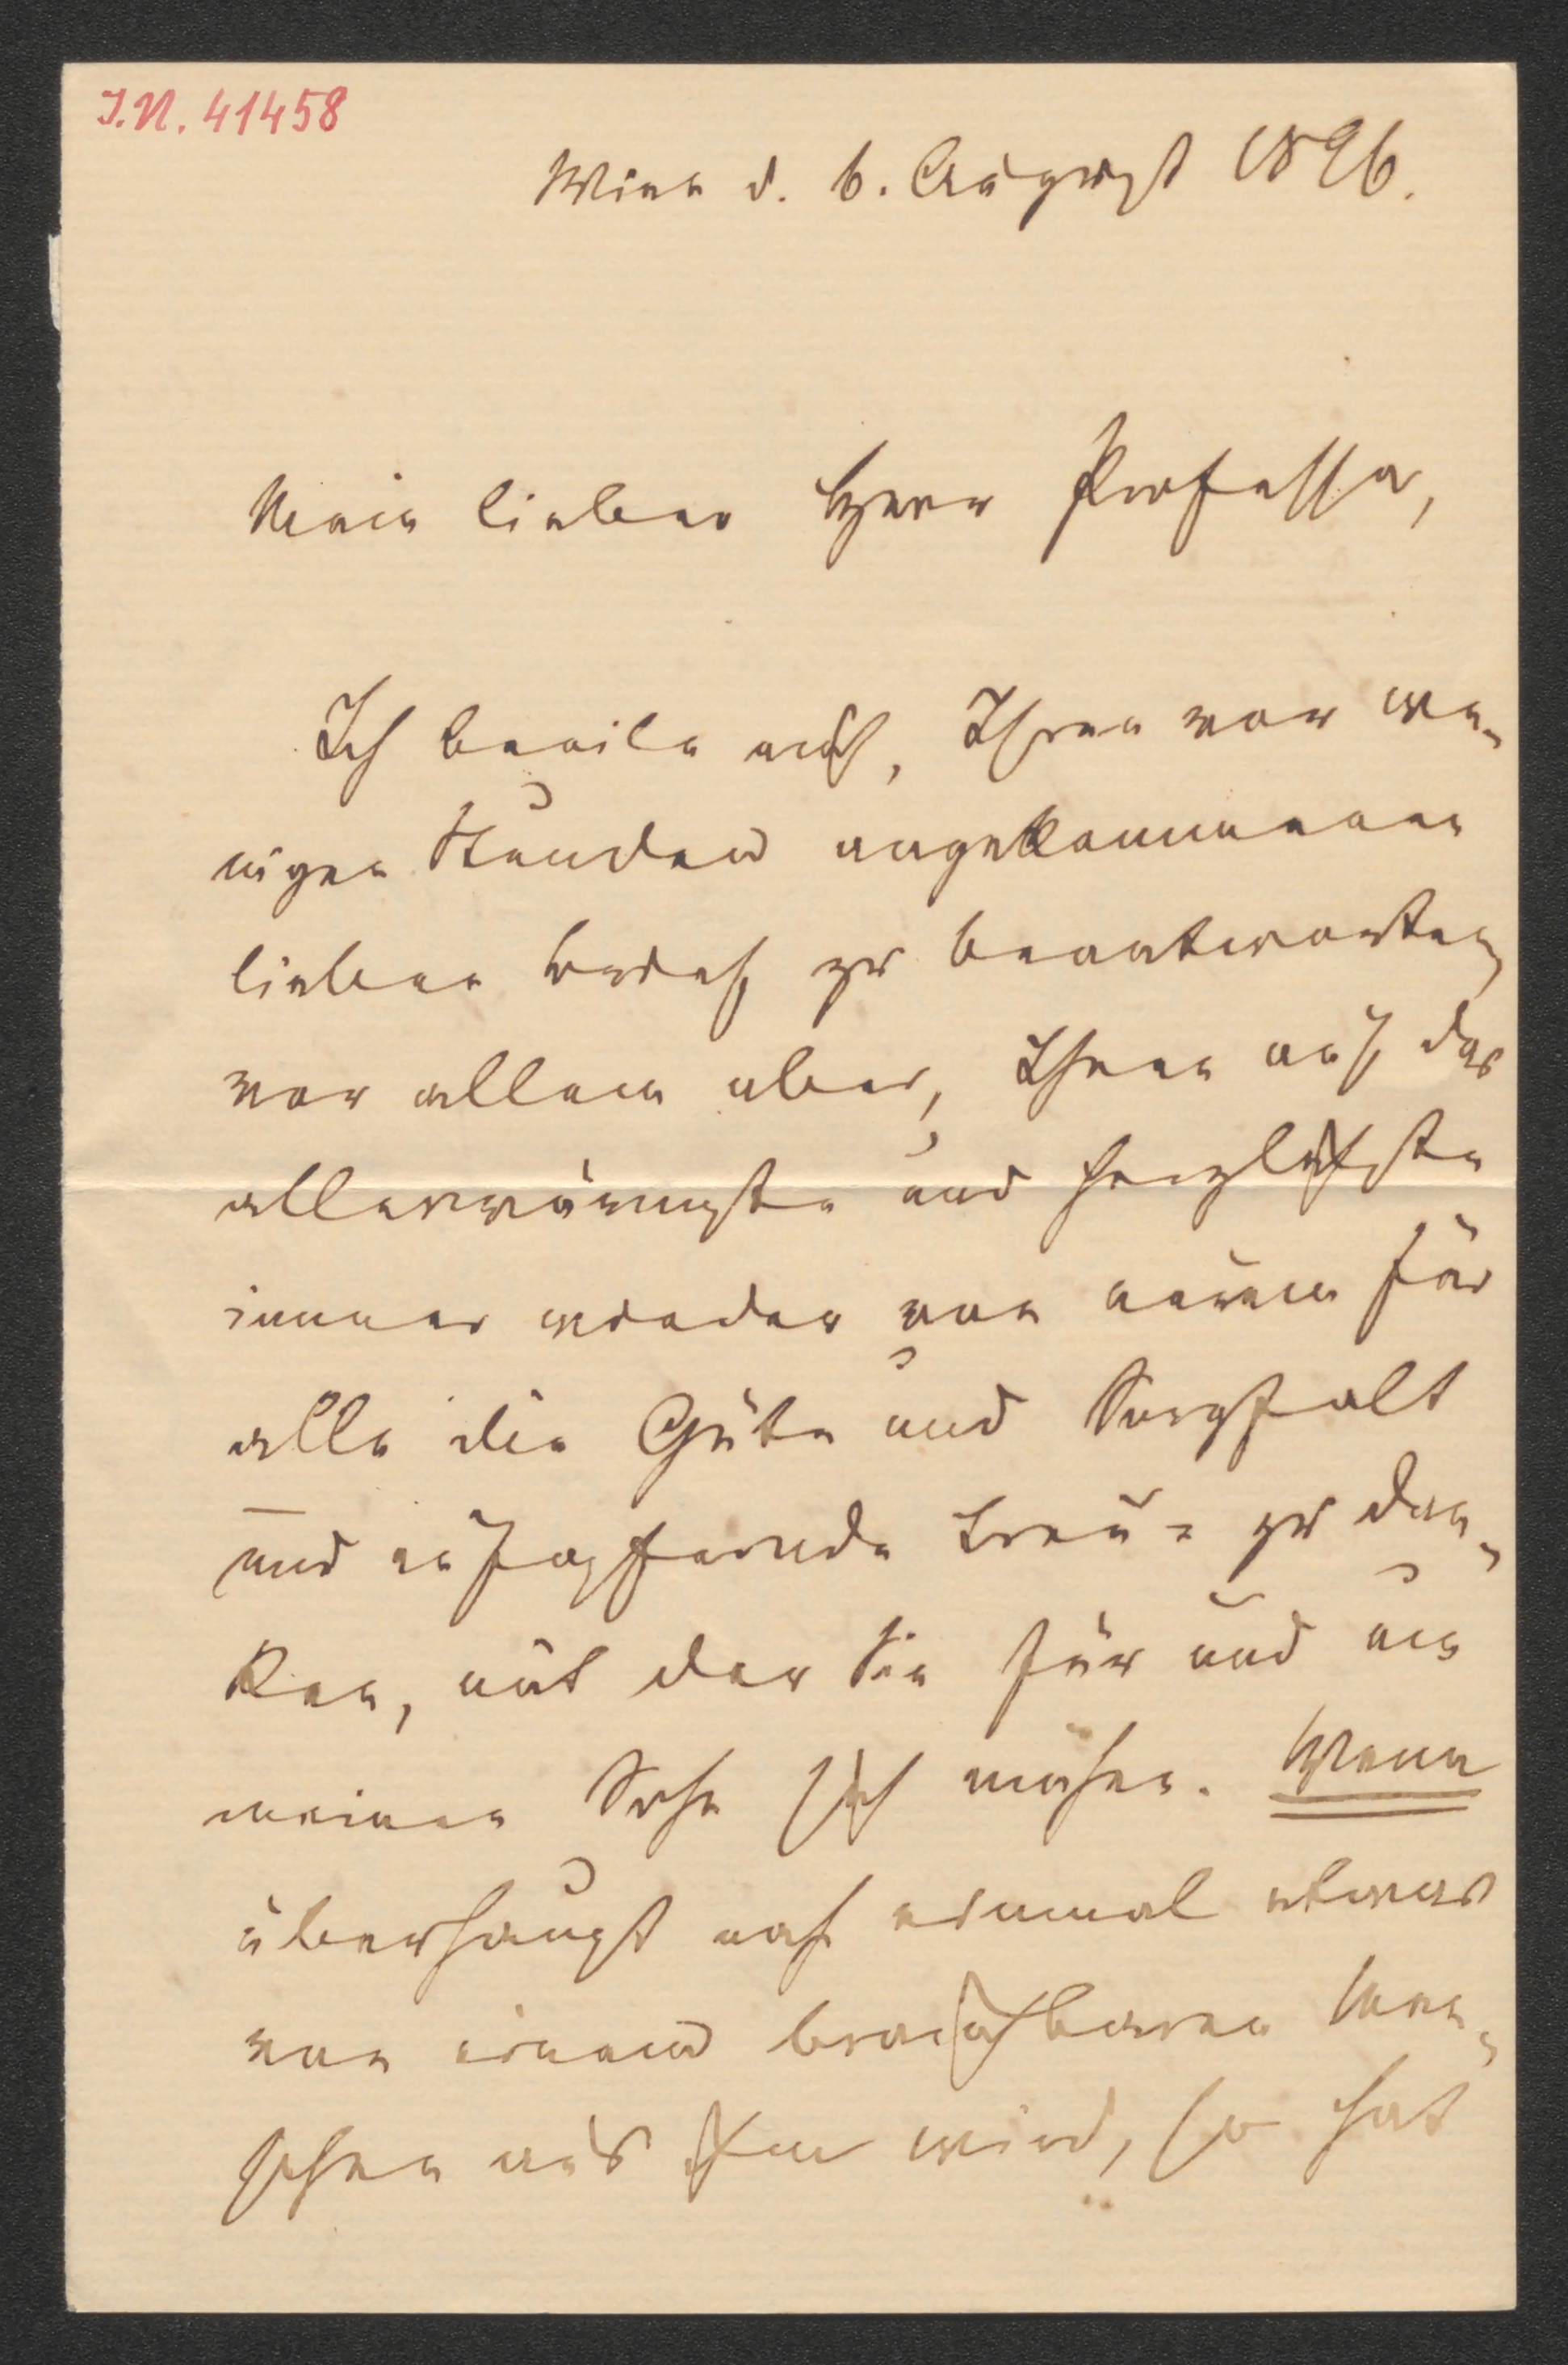 I.N. 41458
Wien d. 6. August 1896.
Mein lieber Herr Professor,
Ich beeile mich, Ihren vor we-
nigen Stunden angekommenen
lieben Brief zu beantworten,
vor allem aber, Ihnen auf das
allerwärmste und herzlichste
immer wieder von neuem für
alle die Güte und Sorgfalt
und aufopfernde Treue zu dan-
ken, mit der Sie für und um
meinen Sohn sich mühen. Wenn
überhaupt noch einmal etwas
von einem brauchbaren Men-
schen aus ihm wird, so hat